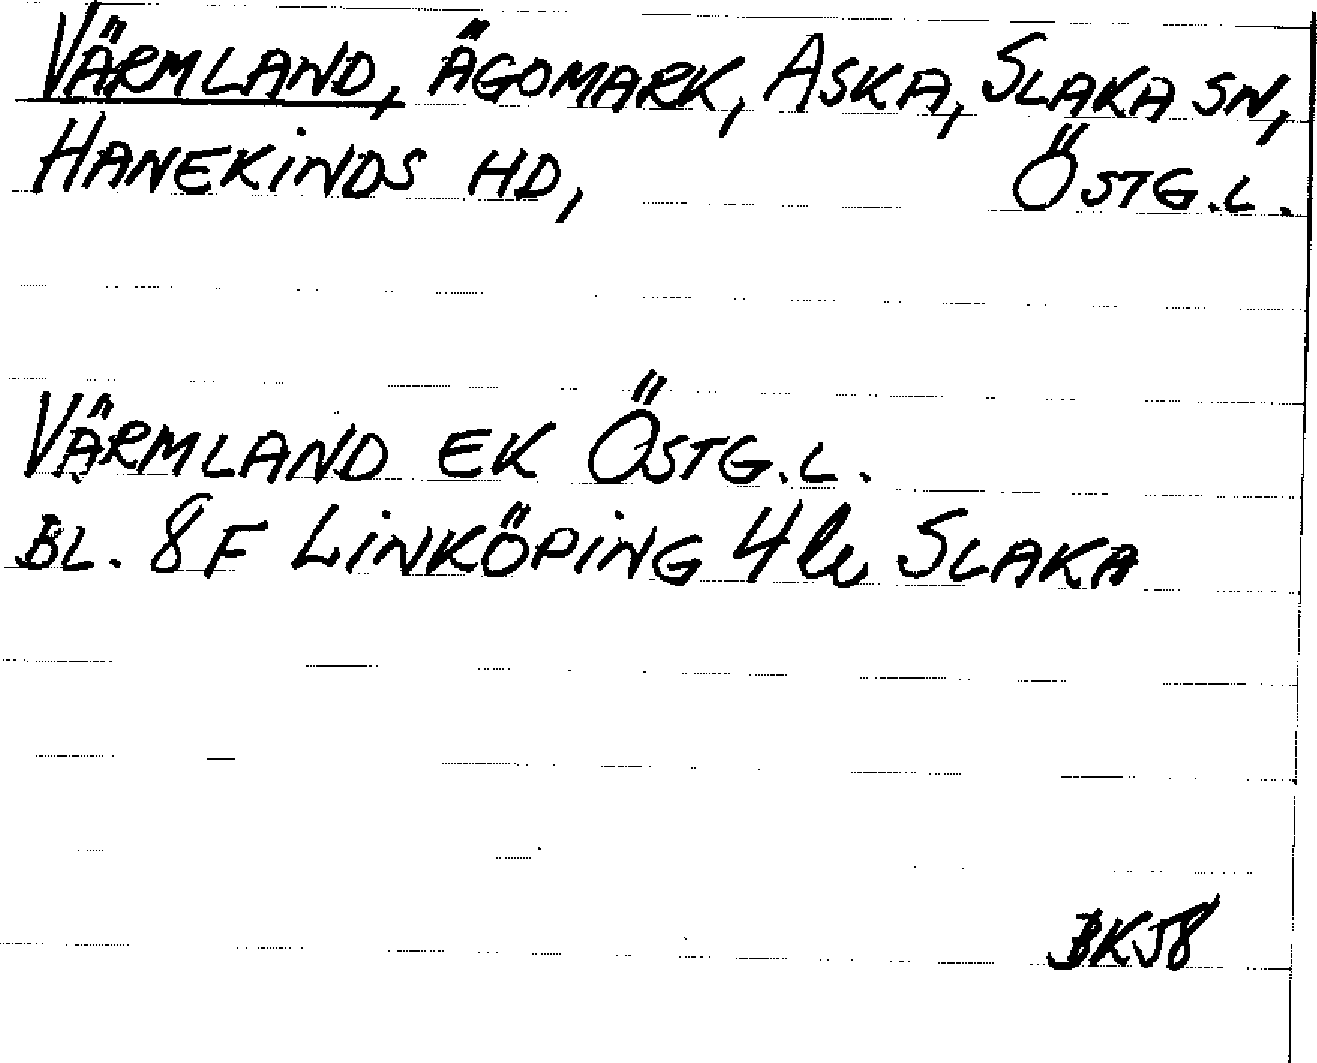 VÄRMLAND, ÄGOMARK, ASKA, SLAKA SN,
HANEKINDS HD, ÖSTG.L.
VÄRMLAND EK ÖSTG.L.
BL. 8F LINKÖPING 4 le SLAKA
BKJ8